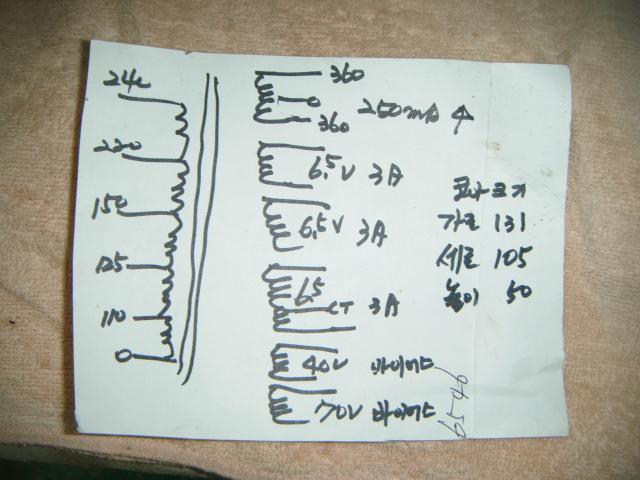 240
220
150
125
110
0
360
0
360
250mA
6.5V 3A
6.5V 3A
6.5 CT 3A
40V 바이어스
70V 바이어스
코아 크기
가로 131
세로 105
높이 50